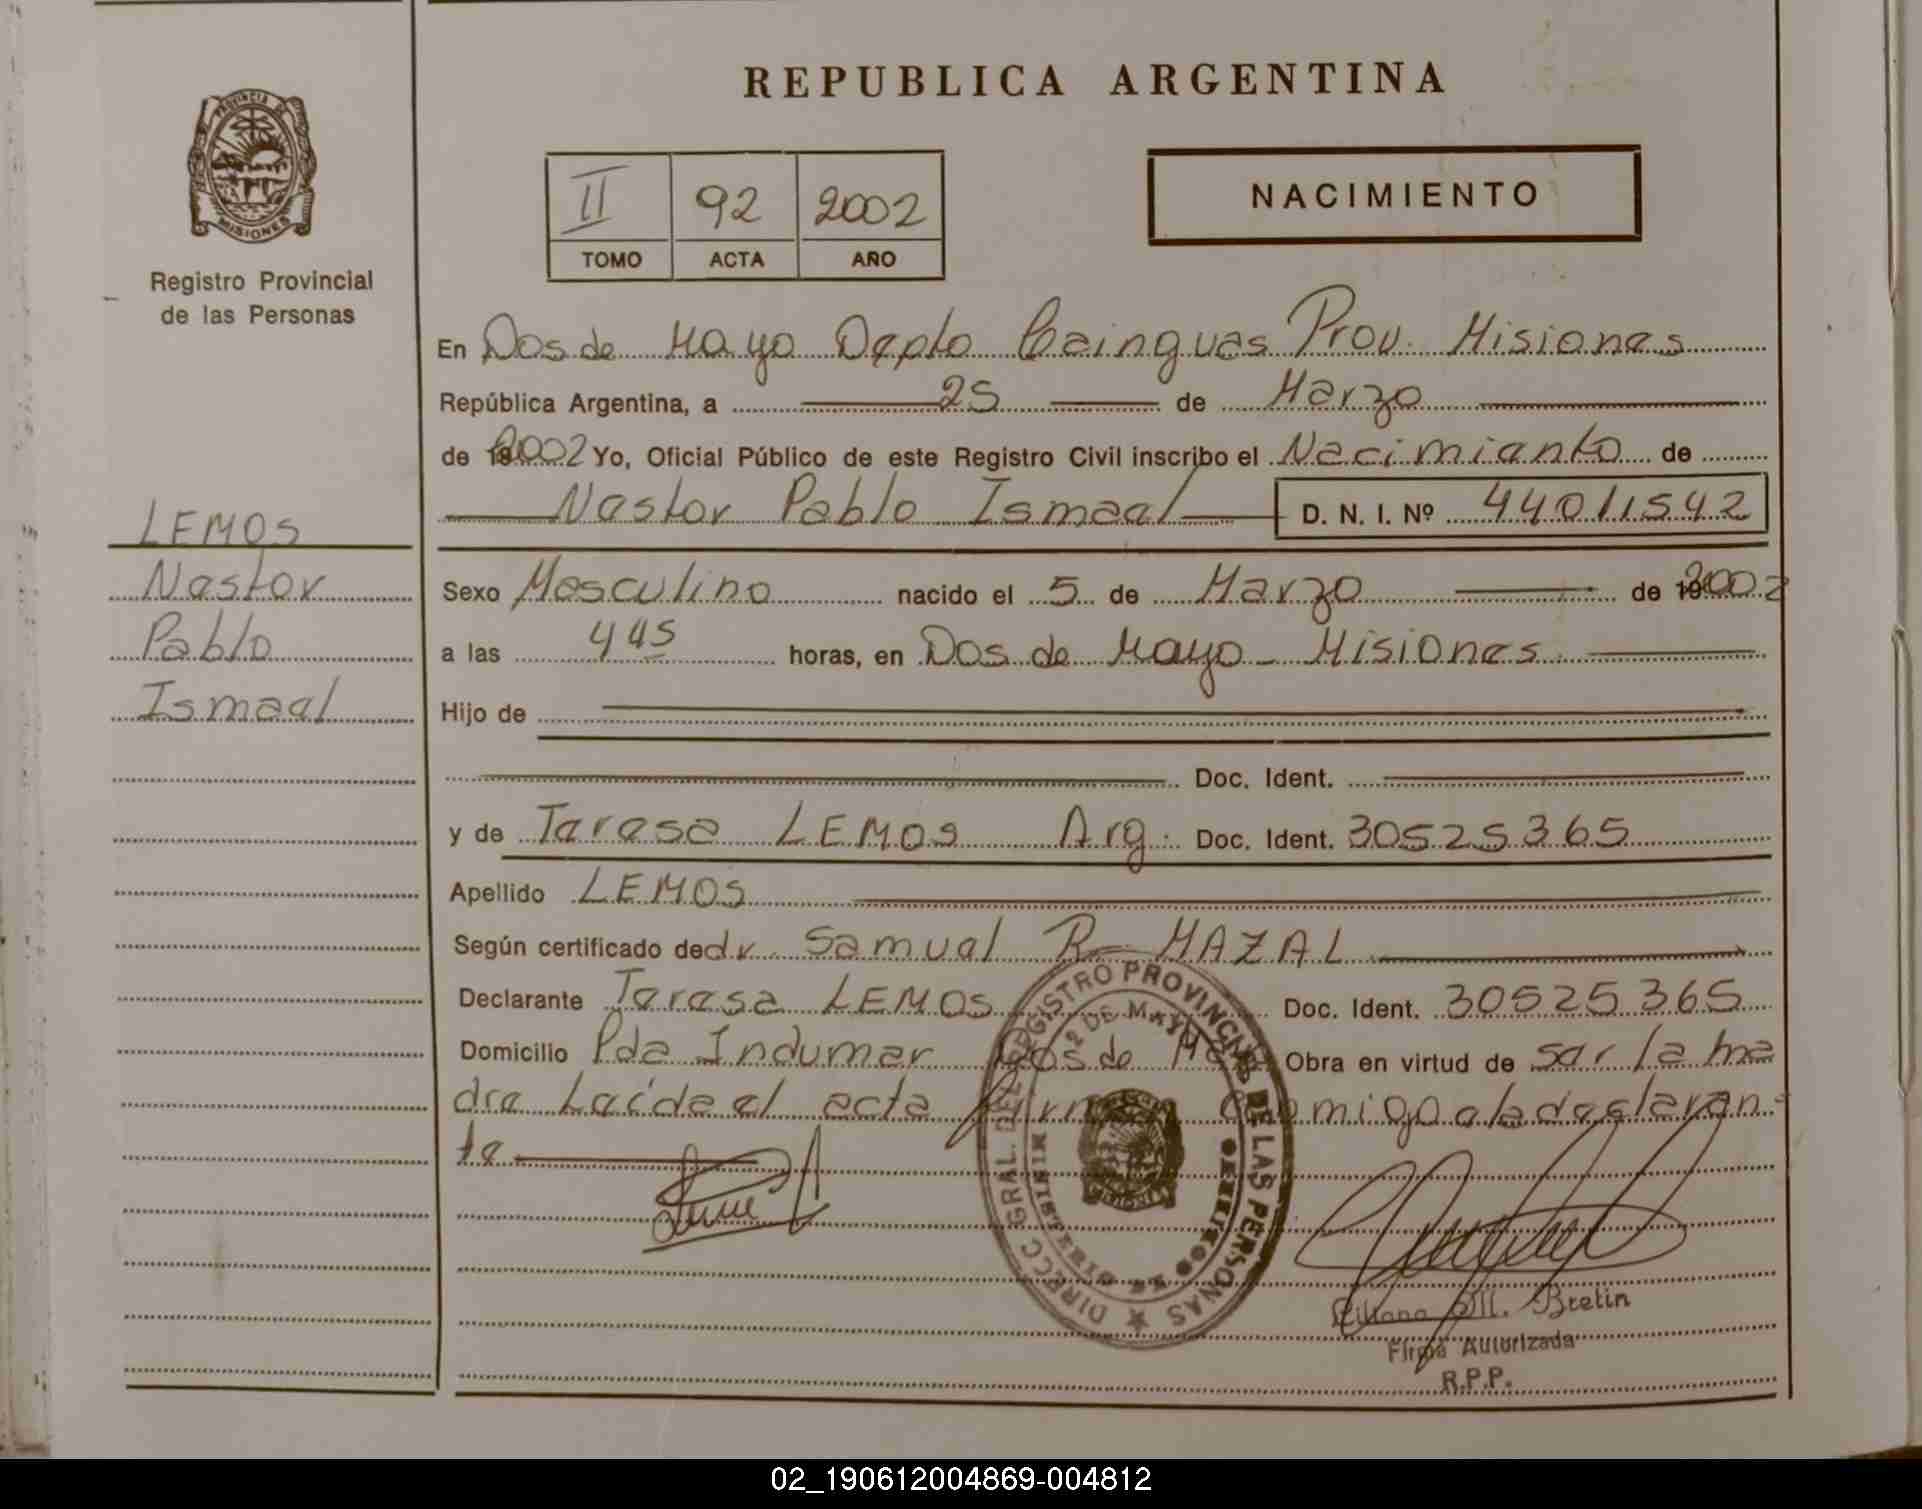 REPUBLICA ARGENTINA
PROVINCIA DE
MISIONES
Registro Provincial
de las Personas
II 92 2002
TOMO ACTA AÑO
NACIMIENTO
LEMOS
Nestor
Pablo
Ismael
En Dos de Mayo Depto Cainguas Prov. Misiones
República Argentina, a 25 de Marzo
de 2002 Yo, Oficial Público de este Registro Civil inscribo el Nacimiento de
Nestor Pablo Ismael D. N. I. Nº 44011542
Sexo Masculino nacido el 5 de Marzo de 2002
a las 445 horas, en Dos de Mayo - Misiones
Hijo de
Doc. Ident.
y de Teresa LEMOS Arg. Doc. Ident. 30525365
Apellido LEMOS
Según certificado de dr. Samuel R. MAZAL
Declarante Teresa LEMOS Doc. Ident. 30525365
Domicilio Pda Indumar Dos de Mayo Obra en virtud de ser la ma
dre Leída el acta firma conmigo la declaran-
te
DIRECC. GRAL. DEL REGISTRO PROVINCIAL DE LAS PERSONAS
2 DE MAYO
MISIONES
Liliana M. Bretin
Firma Autorizada
R.P.P.
02_190612004869-004812